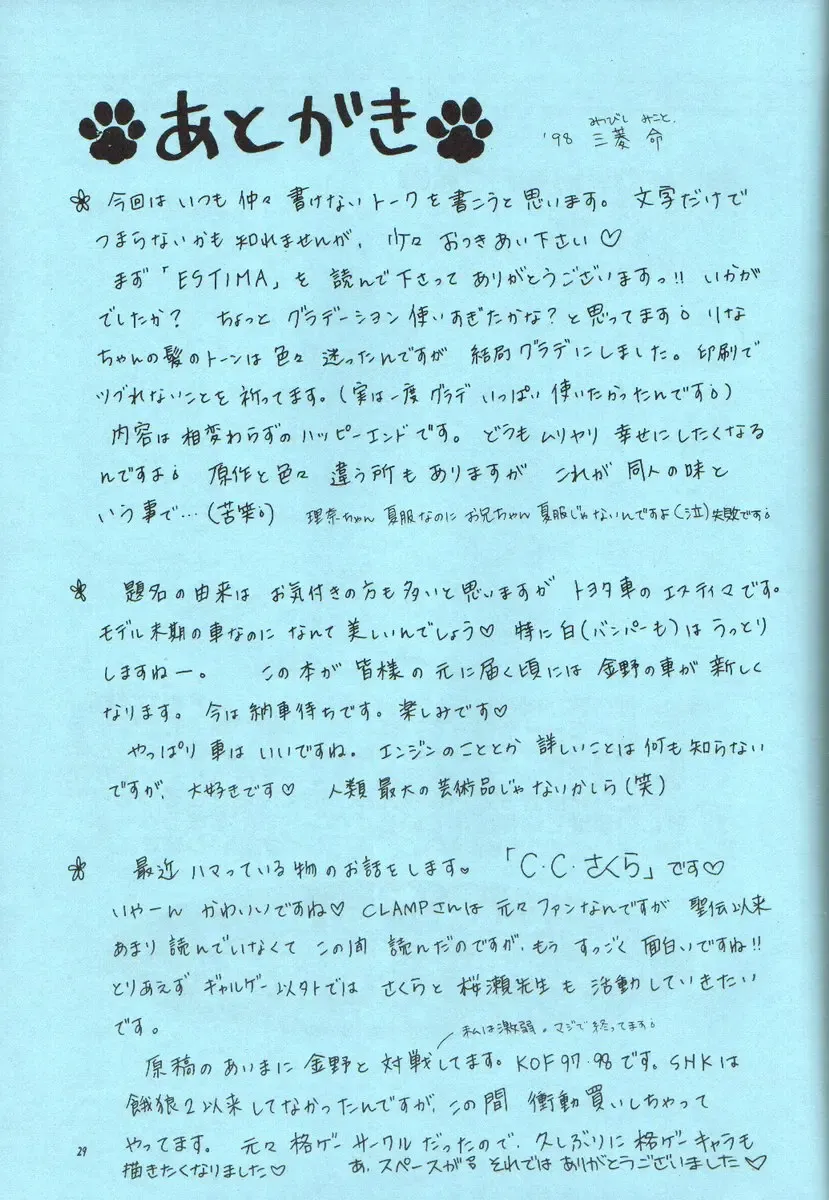 あとがき
みつびし みこと.
'98 三菱 命
今回は いつも 仲々 書けない トークを 書こうと 思います。 文字だけで
つまらないかも 知れませんが、少々 おつきあい下さい♡
まず「ESTIMA」を 読んで下さって ありがとうございますっ!! いかが
でしたか? ちょっと グラデーション 使いすぎたかな? と思ってます。 りな
ちゃんの髪のトーンは 色々 迷ったんですが 結局 グラデにしました。印刷で
ツブれないことを 祈ってます。(実は一度 グラデ いっぱい 使いたかったんです。)
内容は 相変わらずの ハッピーエンドです。 どうも ムリヤリ 幸せにしたくなる
んですよ。 原作と 色々 違う所も ありますが これが 同人の味と
いう事で…(苦笑。) 理奈ちゃん 夏服なのに お兄ちゃん 夏服じゃないんですよ(泣)失敗です。
題名の由来は お気付きの方も 多いと 思いますが トヨタ車の エスティマです。
モデル末期の車なのに なんて 美しいんでしょう♡ 特に 白(バンパーも)は うっとり
しますねー。 この本が 皆様の 元に 届く頃には 金野の車が 新しく
なります。 今は 納車待ちです。楽しみです♡
やっぱり 車は いいですね。 エンジンのこととか 詳しいことは 何も 知らない
ですが、 大好きです♡ 人類 最大の 芸術品じゃないかしら(笑)
最近 ハマっている 物の お話を します。 「C・C・さくら」です♡
いやーん かわいいですね♡ CLAMPさんは 元々 ファンなんですが 聖伝以来
あまり 読んでいなくて この間 読んだのですが、もう すっごく 面白いですね!!
とりあえず ギャルゲー 以外では さくらと 桜瀬先生も 活動していきたい
です。
私は激弱。マジで終ってます。
原稿の あいまに 金野と 対戦してます。KOF97・98です。SNKは
餓狼2以来 してなかったんですが、この間 衝動買いしちゃって
やってます。 元々 格ゲー サークルだったので、久しぶりに 格ゲーキャラも
描きたくなりました♡ あ、スペースが。 それでは ありがとうございました♡
29